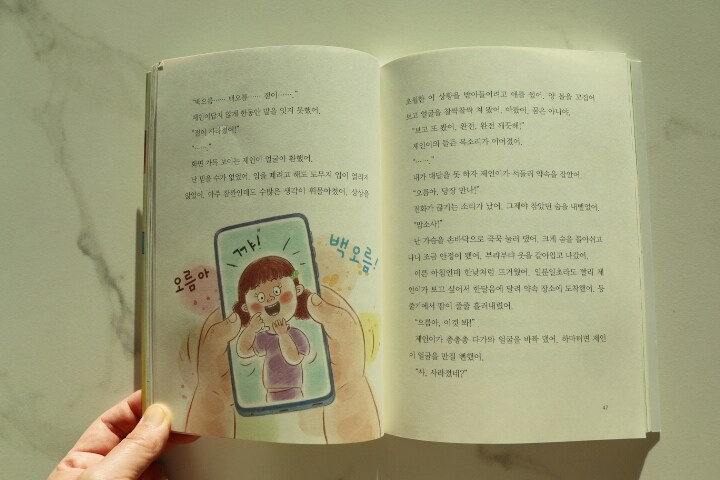 "백오름…… 백오름…… 점이……."
제인이답지 않게 한동안 말을 잇지 못했어.
"점이 사라졌어!"
"……."
화면 가득 보이는 제인이 얼굴이 환했어.
난 믿을 수가 없었어. 입을 떼려고 해도 도무지 입이 떨어지지
않았어. 아주 잠깐인데도 수많은 생각이 휘몰아쳤어. 상상을
꺄!
오름아
백오름!
초월한 이 상황을 받아들이려고 애를 썼어. 양 볼을 꼬집어
보고 얼굴을 찰싹찰싹 쳐 봤어. 아팠어. 꿈은 아니야.
"보고 또 봤어. 완전, 완전 깨끗해!"
제인이의 들뜬 목소리가 이어졌어.
"……."
내가 대답을 못 하자 제인이가 서둘러 약속을 잡았어.
"오름아, 당장 만나!"
전화가 끊기는 소리가 났어. 그제야 참았던 숨을 내뱉었어.
"맙소사!"
난 가슴을 손바닥으로 꾹꾹 눌러 댔어. 크게 숨을 몰아쉬고
나니 조금 안정이 됐어. 부랴부랴 옷을 갈아입고 나갔어.
이른 아침인데 한낮처럼 뜨거웠어. 일분일초라도 빨리 제
인이가 보고 싶어서 한달음에 달려 약속 장소에 도착했어. 등
줄기에서 땀이 줄줄 흘러내렸어.
"오름아, 이것 봐!"
제인이가 총총총 다가와 얼굴을 바짝 댔어. 하마터면 제인
이 얼굴을 만질 뻔했어.
"사, 사라졌네?"
47